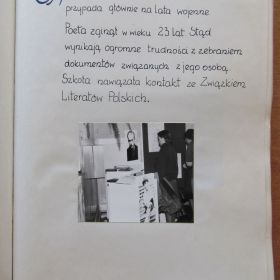 przypada głównie na lata wojenne
Poeta zginął w wieku 23 lat. Stąd
wynikają ogromne trudności z zebraniem
dokumentów związanych z jego osobą.
Szkoła nawiązała kontakt ze Związkiem
Literatów Polskich.